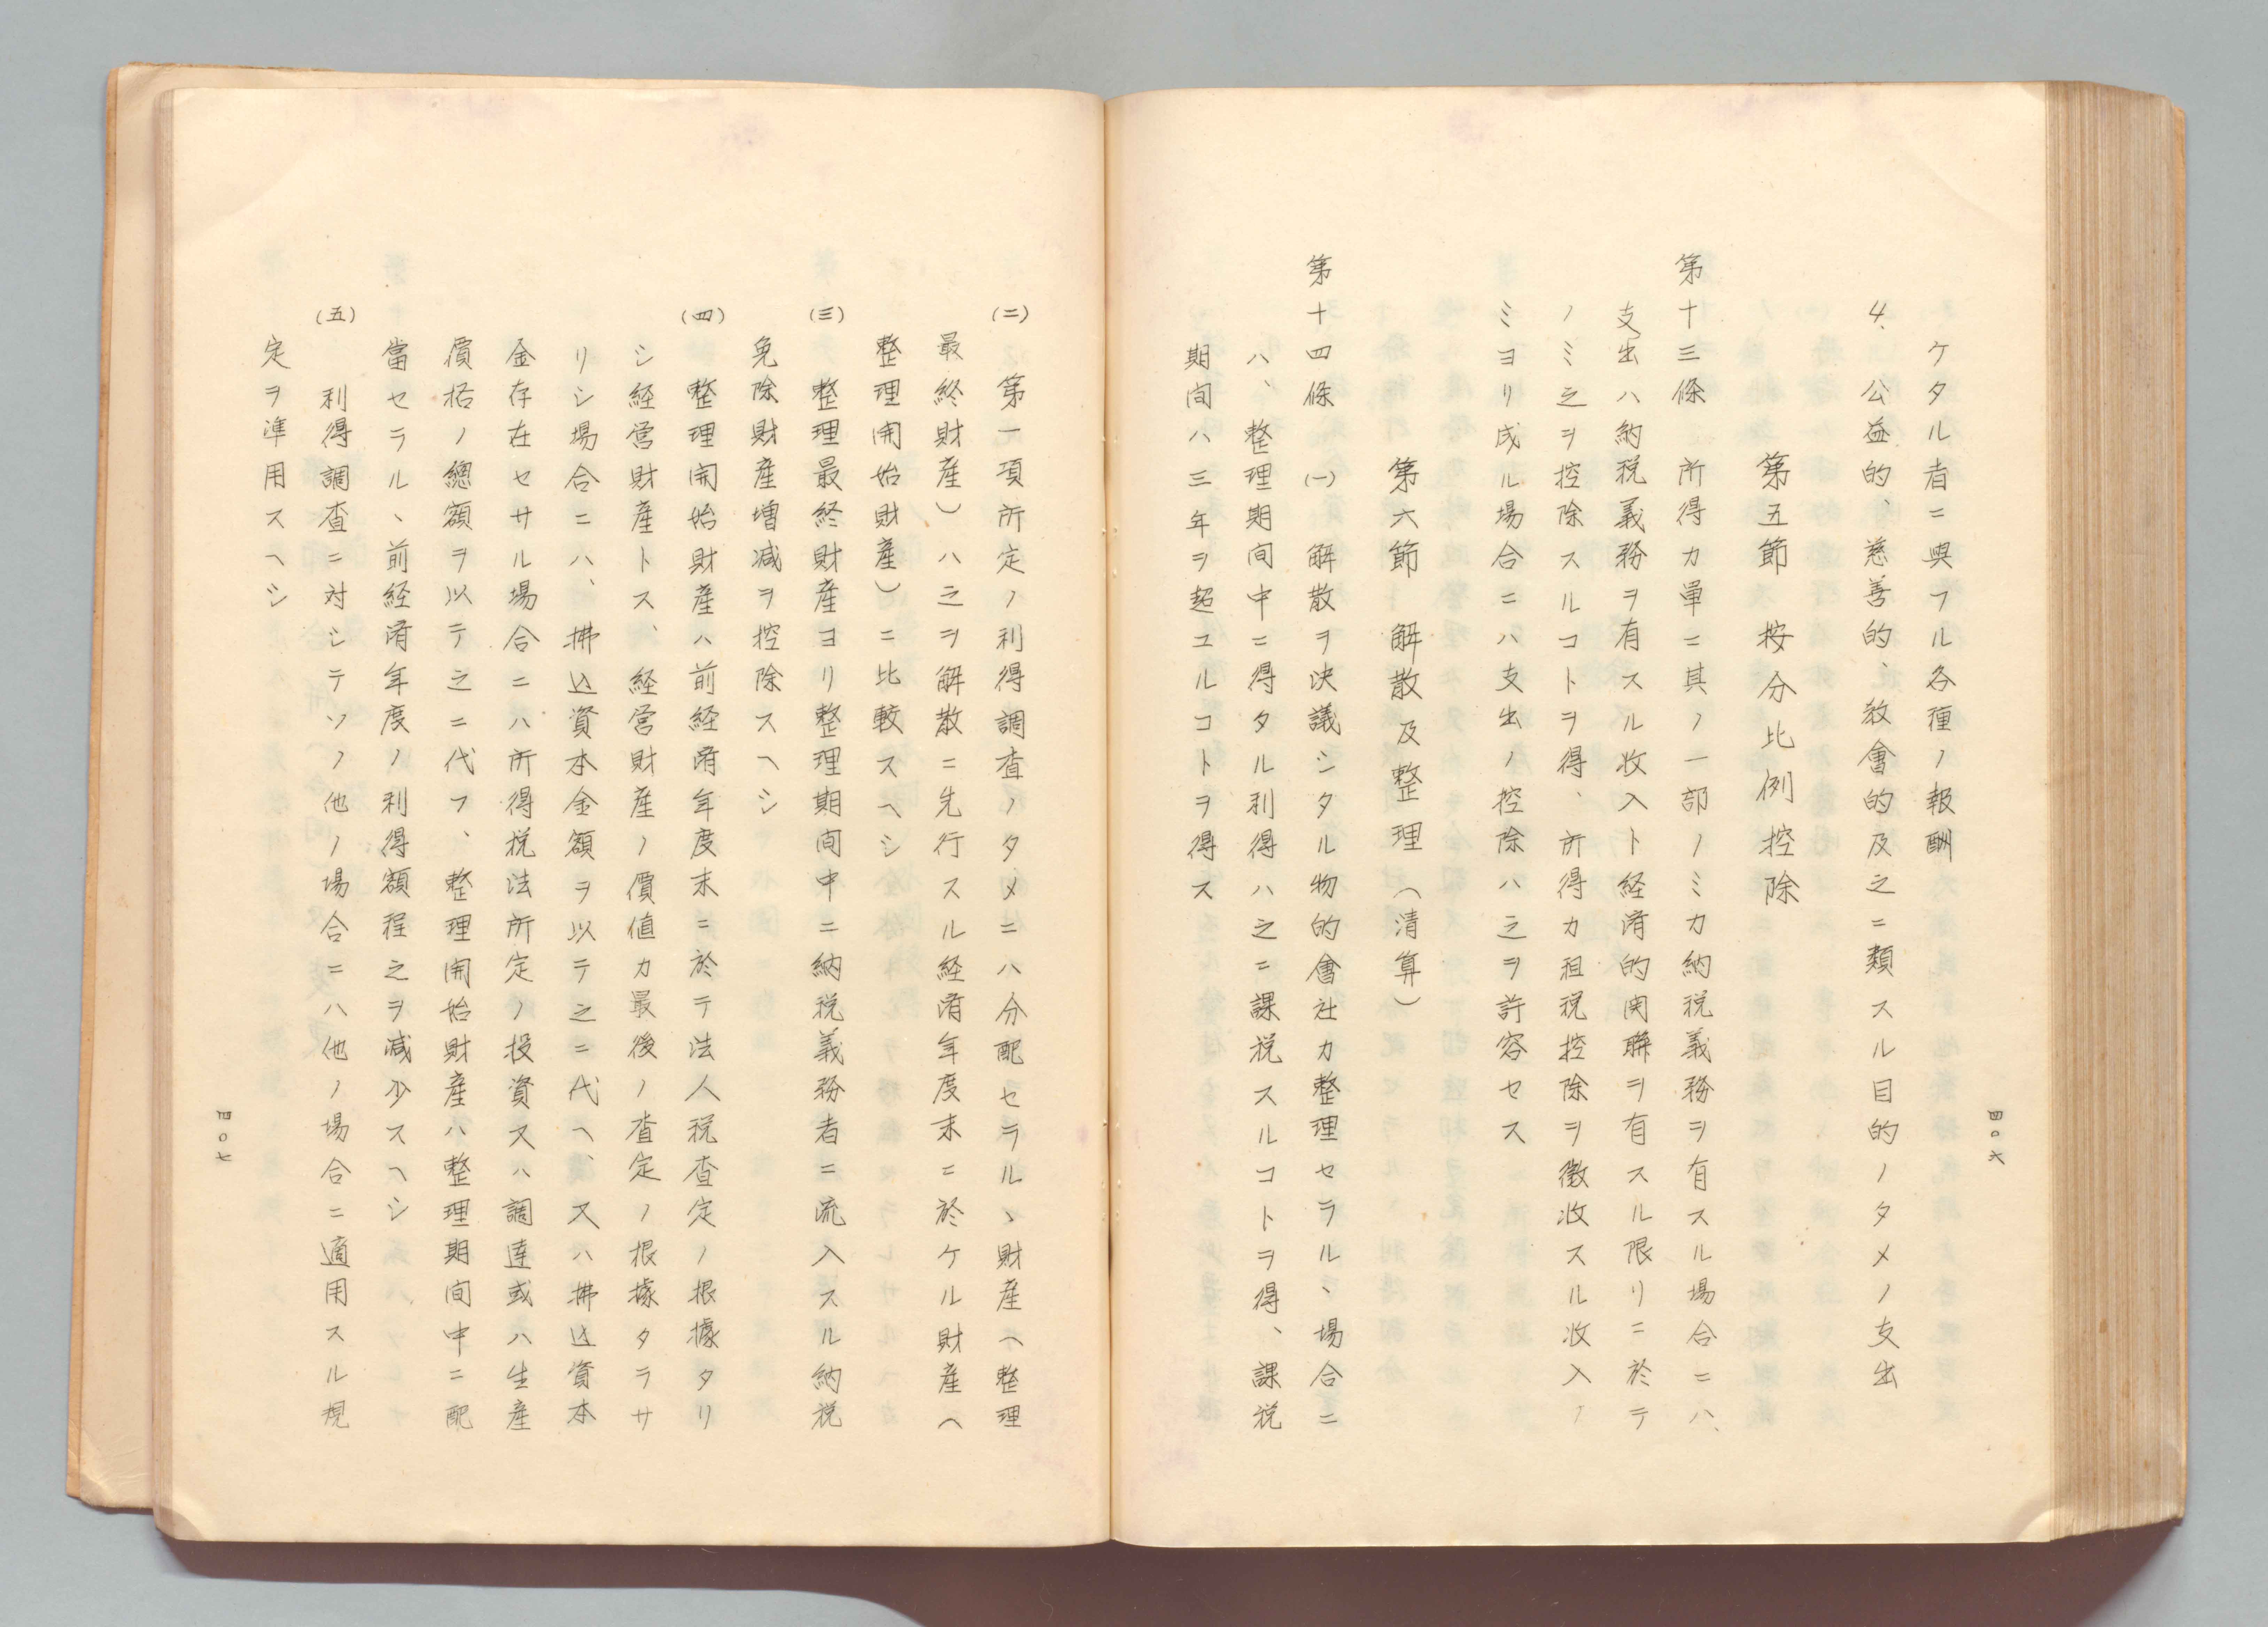 ケタル者ニ與フル各種ノ報酬
4、公益的、慈善的、敎會的及之ニ類スル目的ノタメノ支出
第五節 按分比例控除
第十三條 所得カ單ニ其ノ一部ノミカ納税義務ヲ有スル場合ニハ、
支出ハ納税義務ヲ有スル收入ト経済的関聯ヲ有スル限リニ於テ
ノミ之ヲ控除スルコトヲ得、所得カ租税控除ヲ徴收スル收入ノ
ミヨリ成ル場合ニハ支出ノ控除ハ之ヲ許容セス
第六節 解散及整理(清算)
第十四條 (一) 解散ヲ決議シタル物的會社カ整理セラル、場合ニ
ハ、整理期间中ニ得タル利得ハ之ニ課税スルコトヲ得、課税
期间ハ三年ヲ超ユルコトヲ得ス
四〇六
(二) 第一項所定ノ利得調査ノタメニハ分配セラルヽ財産(整理
最終財産)ハ之ヲ解散ニ先行スル経済年度末ニ於ケル財産(
整理開始財産)ニ比較スヘシ
(三) 整理最終財産ヨリ整理期间中ニ納税義務者ニ流入スル納税
免除財産増減ヲ控除スヘシ
(四) 整理開始財産ハ前経済年度末ニ於テ法人税査定ノ根據タリ
シ経営財産トス、経営財産ノ價値カ最後ノ査定ノ根據タラサ
リシ場合ニハ、拂込資本金額ヲ以テ之ニ代ヘ、又ハ拂込資本
金存在セサル場合ニハ所得税法所定ノ投資又ハ調達或ハ生産
價格ノ總額ヲ以テ之ニ代フ、整理開始財産ハ整理期间中ニ配
當セラル、前経済年度ノ利得額程之ヲ減少スヘシ
(五) 利得調査ニ対シテソノ他ノ場合ニハ他ノ場合ニ適用スル規
定ヲ準用スヘシ
四〇七